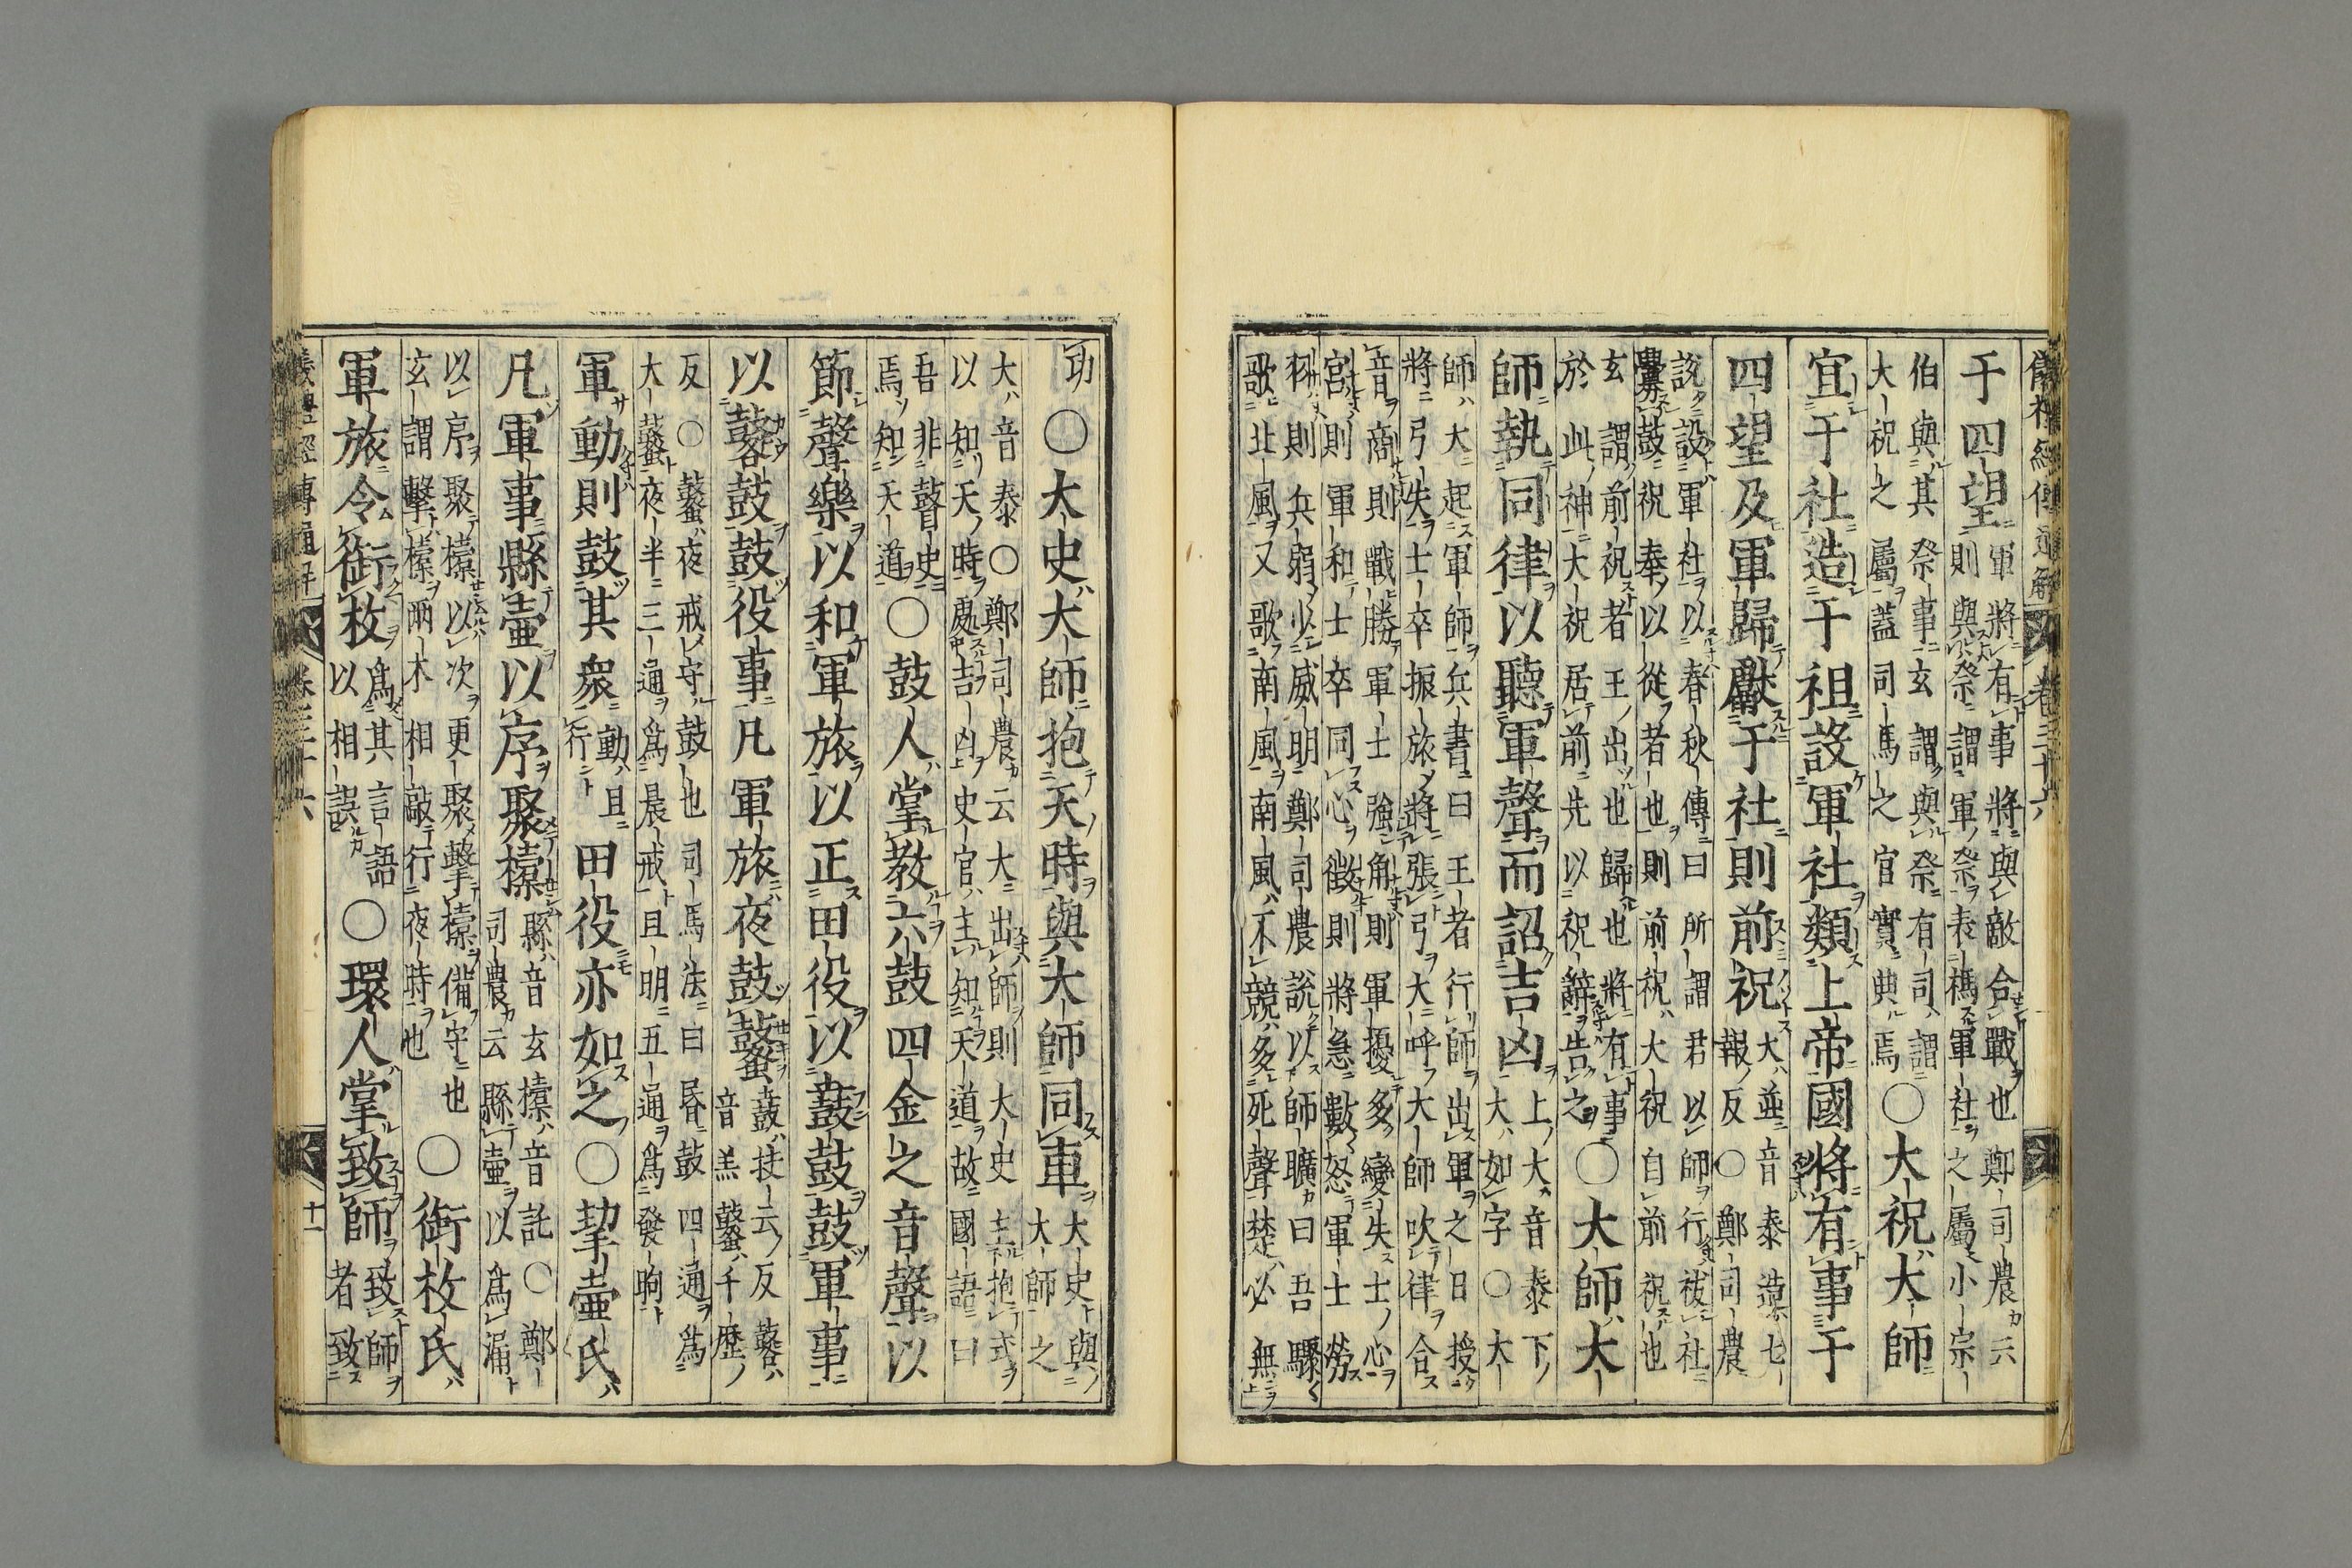 儀禮經傳通解 卷三十六
于四望軍將有事將與敵合戰也鄭司農云
則與祭謂軍祭表禡軍社之屬小宗
伯與其祭事玄謂與祭有司謂
大祝之屬蓋司馬之官實典焉○大祝大師
宜于社造于祖設軍社類上帝國將有事于
四望及軍歸獻于社則前祝大並音泰造七
報反○鄭司農
說設軍社以春秋傳曰所謂君以師行祓社
釁鼓祝奉以從者也則前祝大祝自前祝也
玄謂前祝者王出也歸也將有事
於此神大祝居前先以祝辭告之○大師大
師執同律以聽軍聲而詔吉凶上大音泰下
大如字○大
師大起軍師兵書曰王者行師出軍之日授
將弓失士卒振旅將張弓大呼大師吹律合
音商則戰勝軍士強角則軍擾多變失士心
宮則軍和士卒同心徵則將急數怒軍士勞
羽則兵弱少威明鄭司農說以師曠曰吾驟
歌北風又歌南風南風不競多死聲楚必無
功○大史大師抱天時與大師同車大史與
大師之
大音泰○鄭司農云大出師則大史主抱式
以知天時處吉凶史官主知天道故國語曰
吾非瞽史
焉知天道○鼓人掌教六鼓四金之音聲以
節聲樂以和軍旅以正田役以鼖鼓鼓軍事
以鼛鼓鼓役事凡軍旅夜鼓鼜鼖扶云反鼛
音羔鼜千歷
反○鼜夜戒守鼓也司馬法曰昏鼓四通爲
大鼜夜半三通爲晨戒且明五通爲發昫
軍動則鼓其衆動且
行田役亦如之○挈壺氏
凡軍事縣壺以序聚㯓縣音玄㯓音託○鄭
司農云縣壺以爲漏
以序聚㯓以次更聚擊㯓備守也
玄謂擊㯓兩木相敲行夜時也○銜枚氏
軍旅令銜枚爲其言語
以相誤○環人掌致師致師
者致
儀禮經傳通解 卷三十六 十一